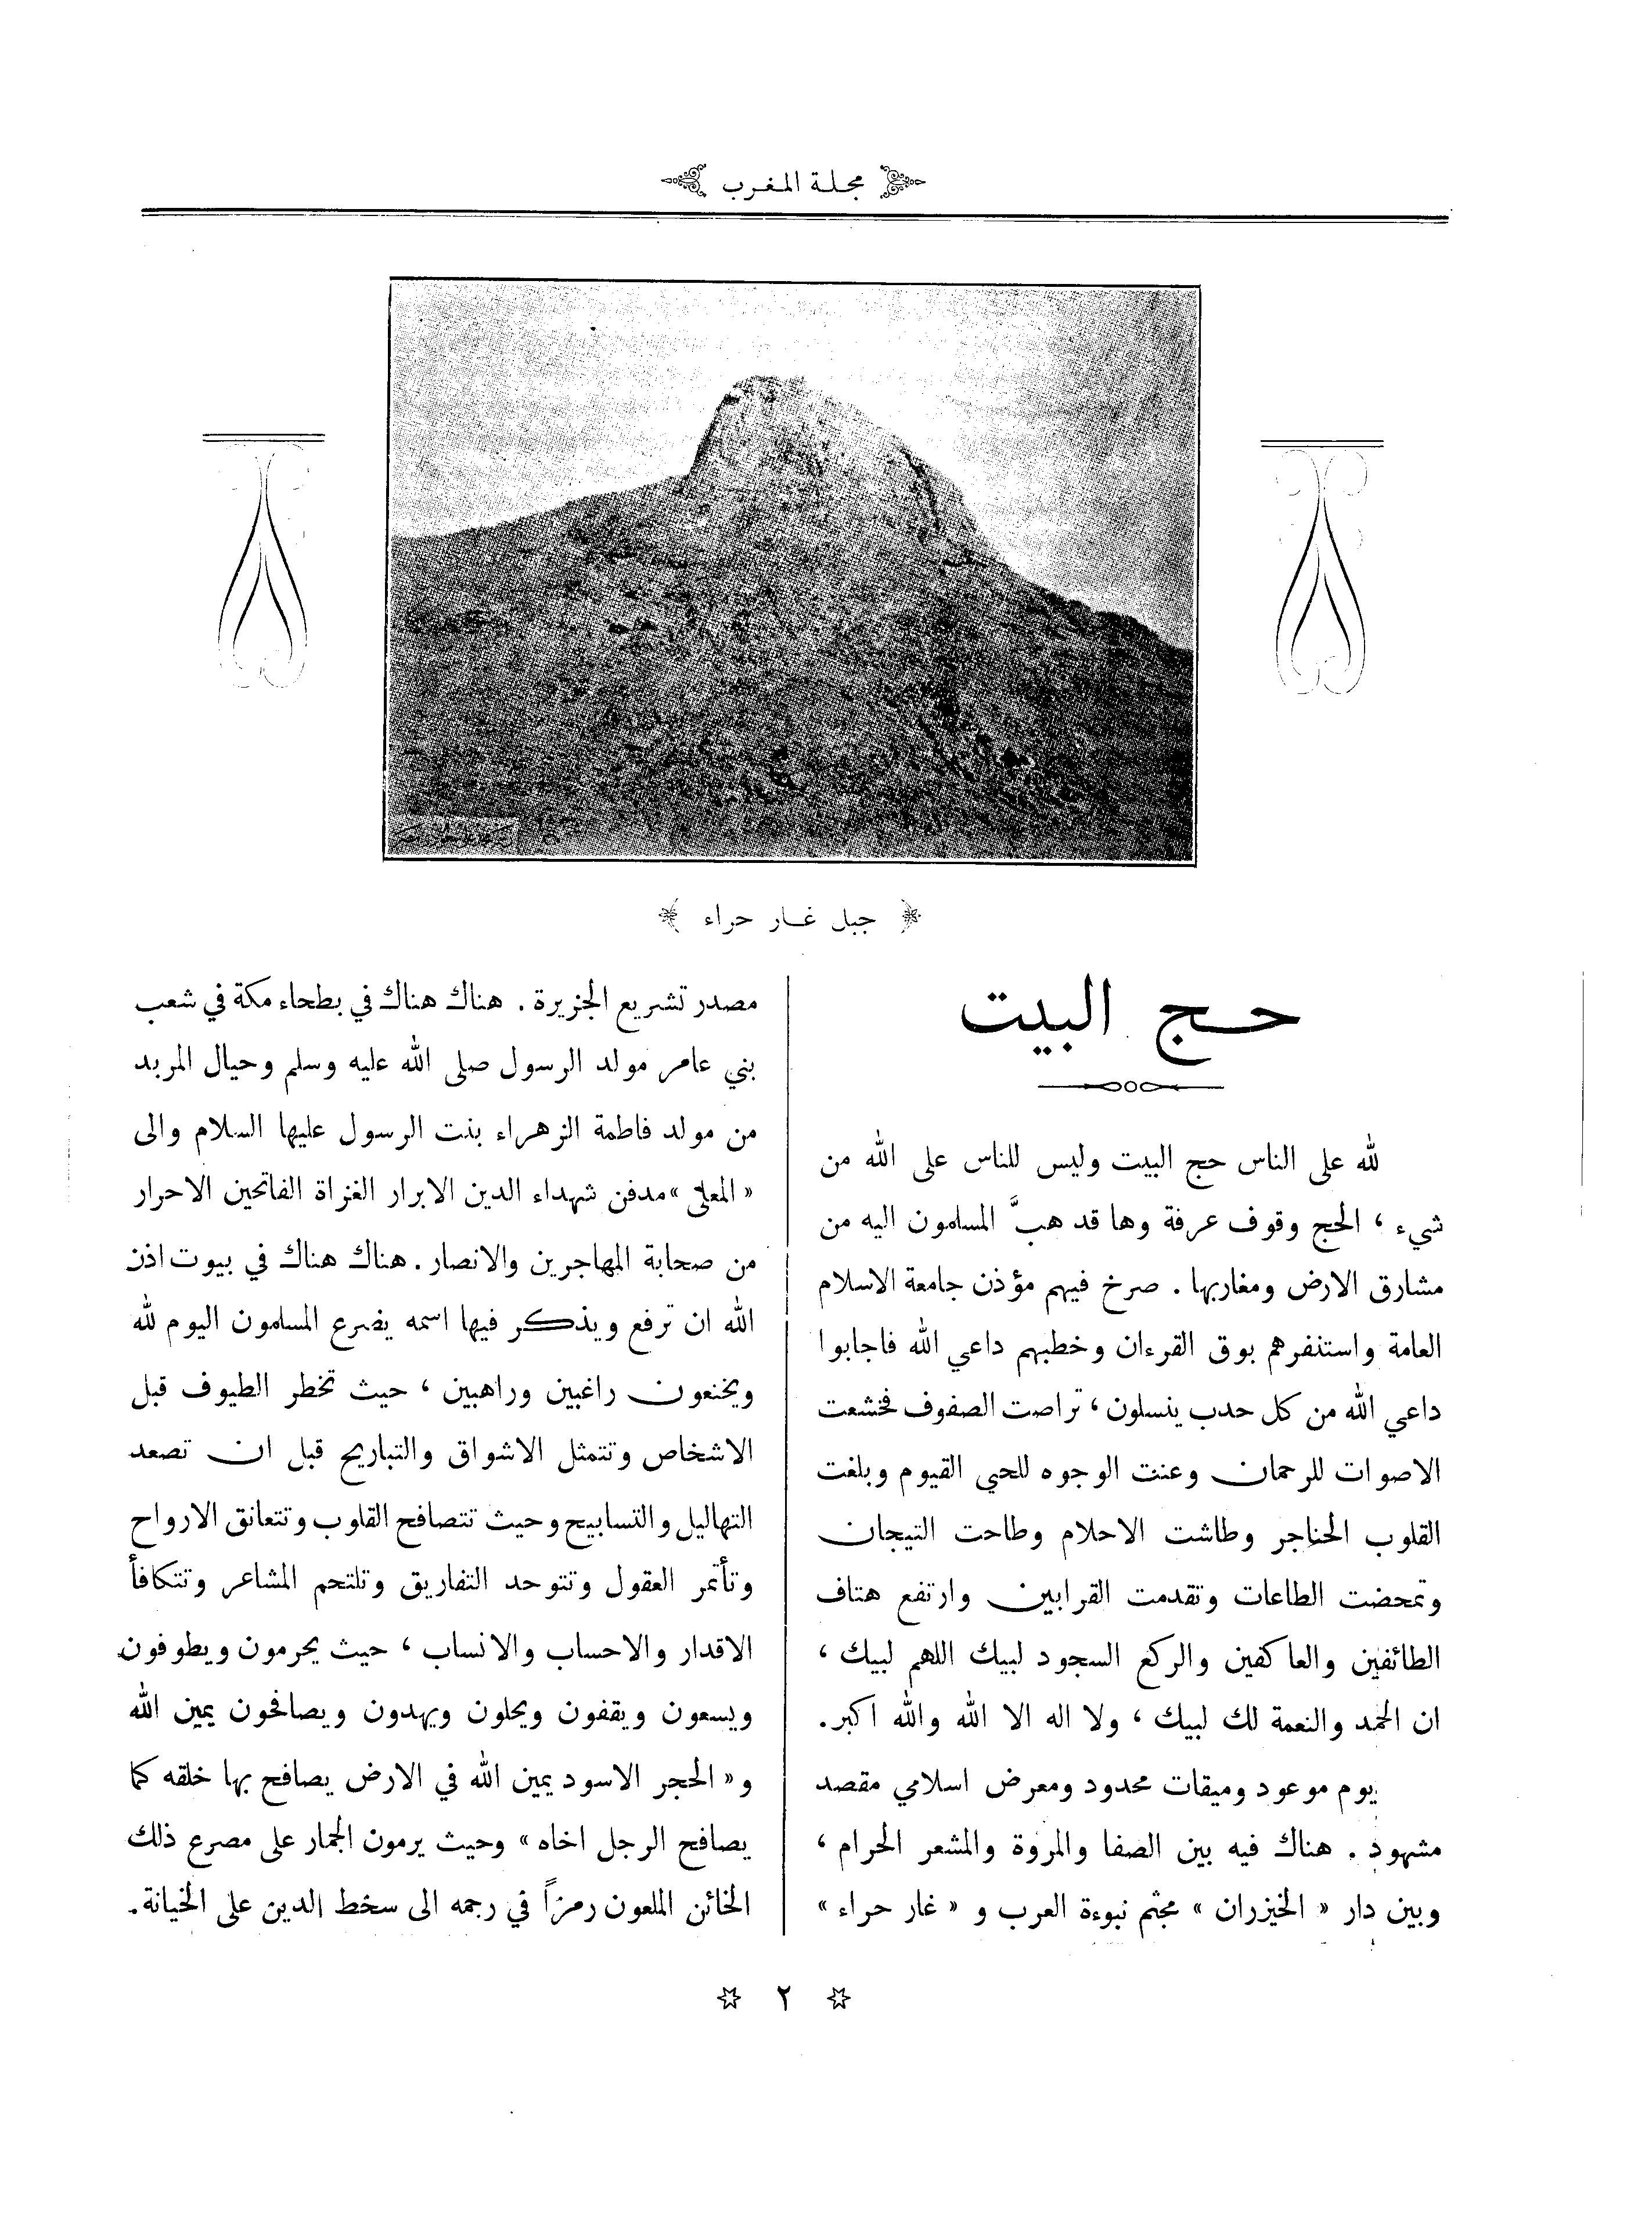 مجلة المغرب
جبل غار حراء
حج البيت
لله على الناس حج البيت وليس للناس على الله من
شيء ، الحج وقوف عرفة وها قد هبَّ المسلمون اليه من
مشارق الارض ومغاربها . صرخ فيهم مؤذن جامعة الاسلام
العامة واستنفرهم بوق القرءان وخطبهم داعي الله فاجابوا
داعي الله من كل حدب ينسلون ، تراصت الصفوف فخشعت
الاصوات للرحمان وعنت الوجوه للحي القيوم وبلغت
القلوب الحناجر وطاشت الاحلام وطاحت التيجان
وتمحضت الطاعات وتقدمت القرابين وارتفع هتاف
الطائفين والعاكفين والركع السجود لبيك اللهم لبيك ،
ان الحمد والنعمة لك لبيك ، ولا اله الا الله والله اكبر.
يوم موعود وميقات محدود ومعرض اسلامي مقصد
مشهود . هناك فيه بين الصفا والمروة والمشعر الحرام ،
وبين دار « الخيزران » مجثم نبوءة العرب و « غار حراء »
مصدر تشريع الجزيرة . هناك هناك في بطحاء مكة في شعب
بني عامر مولد الرسول صلى الله عليه وسلم وحيال المربد
من مولد فاطمة الزهراء بنت الرسول عليها السلام والى
« المعلى » مدفن شهداء الدين الابرار الغزاة الفاتحين الاحرار
من صحابة المهاجرين والانصار . هناك هناك في بيوت اذن
الله ان ترفع ويذكر فيها اسمه يضرع المسلمون اليوم لله
ويخنعون راغبين وراهبين ، حيث تخطر الطيوف قبل
الاشخاص وتتمثل الاشواق والتباريح قبل ان تصعد
التهاليل والتسابيح وحيث تتصافح القلوب وتتعانق الارواح
وتأتمر العقول وتتوحد التفاريق وتلتحم المشاعر وتتكافأ
الاقدار والاحساب والانساب ، حيث يحرمون ويطوفون
ويسعون ويقفون ويحلون ويهدون ويصافحون يمين الله
و « الحجر الاسود يمين الله في الارض يصافح بها خلقه كما
يصافح الرجل اخاه » وحيث يرمون الجمار على مصرع ذلك
الخائن الملعون رمزاً في رجمه الى سخط الدين على الخيانة .
٢